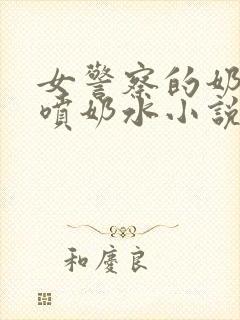 女警察的奶
噴奶水小説
和慶良